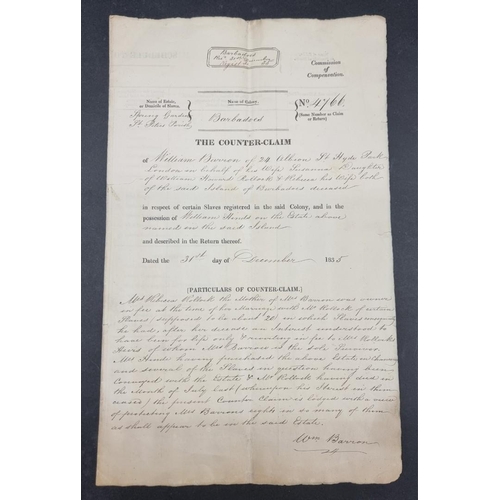 Barbadoes
Commission
of
Compensation.
Name of Estate,
or Domicile of Slaves.
Spring Garden
St Peters Parish
Name of Colony.
Barbadoes
No. 4766
(Same Number as Claim
or Return)
THE COUNTER-CLAIM
of William Barron of 24 Albion St Hyde Park
London in behalf of his Wife Susanna Daughter
of William Pollock & his Wife both
of the said Island of Barbadoes deceased
in respect of certain Slaves registered in the said Colony, and in the
possession of William Hinds on the Estate above
named on the said Island
and described in the Return thereof.
Dated the 31st day of December 1835
(PARTICULARS OF COUNTER-CLAIM.)
Mrs Pollock the Mother of Mrs Barron was owner
in fee at the time of her Marriage with Mr Pollock of certain
Slaves supposed to be about 20 in which Slaves
he had, after her decease an Interest understood to
have been for life only & in fee to Mrs Pollocks
Heirs of whom Mrs Barron is the Survivor
Mrs Hinds having purchased the above Estate
and several of the Slaves in question having been
Conveyed with the Estate & Mr Pollock having died in
the Month of July last (whereupon his Interest in them
ceased) the present Counter Claim is lodged with a view
of protecting Mrs Barrons rights in so many of them
as shall appear to be in the said Estate.
Wm Barron